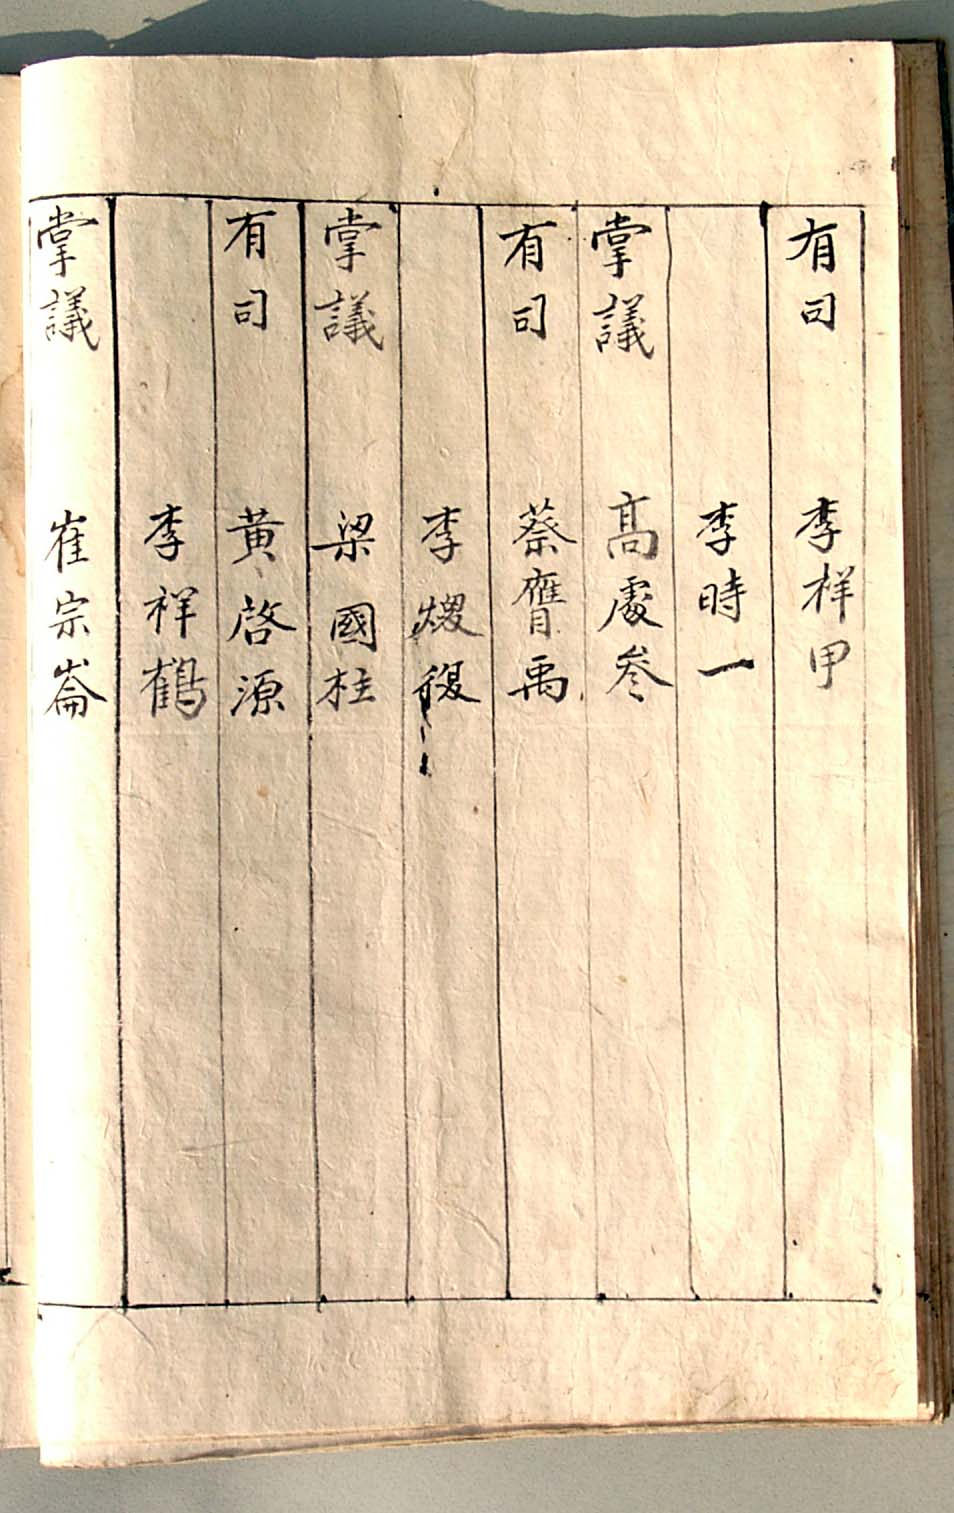 有司 李样甲
李時一
掌議 高處叅
有司 蔡膺禹
李煐馥
掌議 梁國柱
有司 黃啓源
李祥鶴
掌議 崔宗崙